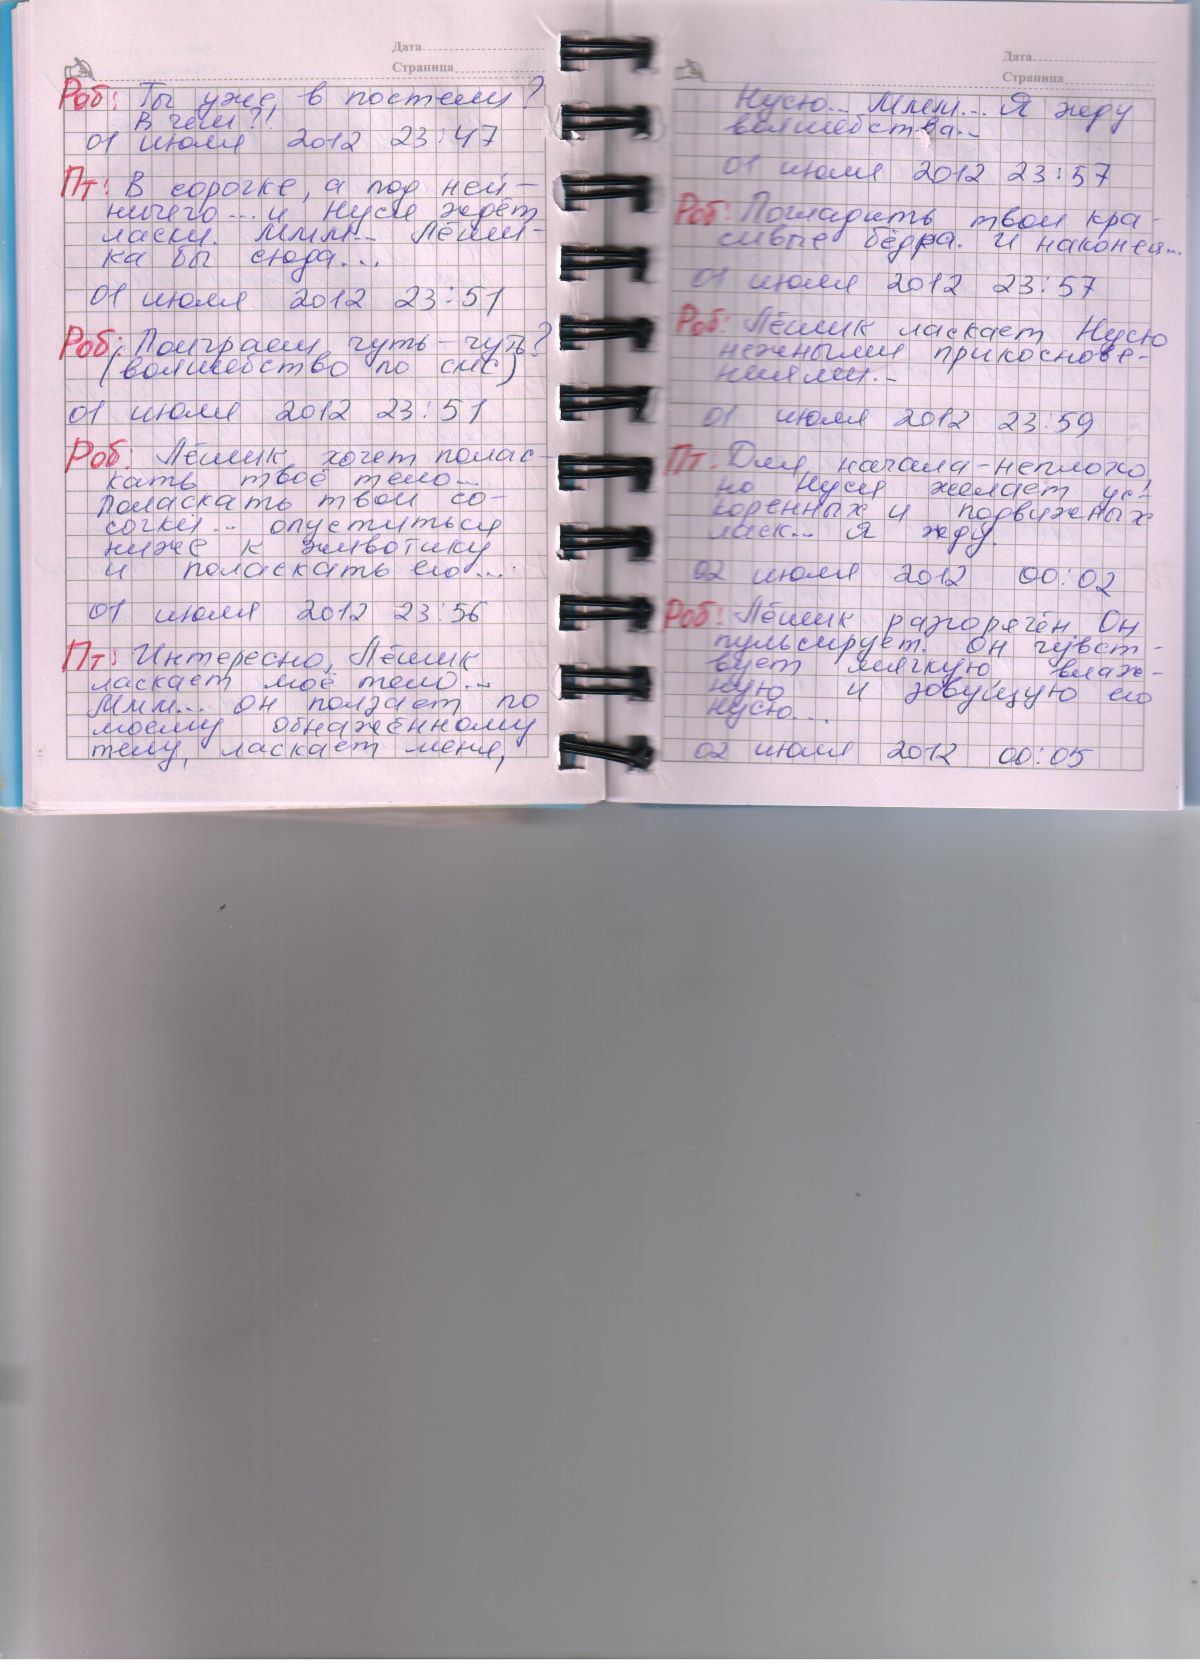 Дата
Страница
Роб: Ты уже в постели?
В чём?!
01 июля 2012 23:47
Пт: В сорочке, а под ней-
ничего... и Нуся ждёт
ласки. Ммм... Лёши-
ка бы сюда...
01 июля 2012 23:51
Роб: Поиграем чуть-чуть?
(волшебство по смс)
01 июля 2012 23:51
Роб: Лёшик хочет полас-
кать твоё тело...
Поласкать твои со-
сочки... опуститься
ниже к животику
и поласкать его...
01 июля 2012 23:56
Пт: Интересно, Лёшик
ласкает моё тело...
Ммм... он ползает по
моему обнажённому
телу, ласкает меня,
Дата
Страница
Нусю... Ммм... Я жду
волшебства...
01 июля 2012 23:57
Роб: Погладить твои кра-
сивые бёдра. И наконец...
01 июля 2012 23:57
Роб: Лёшик ласкает Нусю
нежными прикоснове-
ниями...
01 июля 2012 23:59
Пт: Для начала-неплохо,
но Нуся желает ус-
коренных и подвижных
ласк... Я жду.
02 июля 2012 00:02
Роб: Лёшик разгорячён. Он
пульсирует. Он чувст-
вует мягкую, влаж-
ную и зовущую его
Нусю...
02 июля 2012 00:05